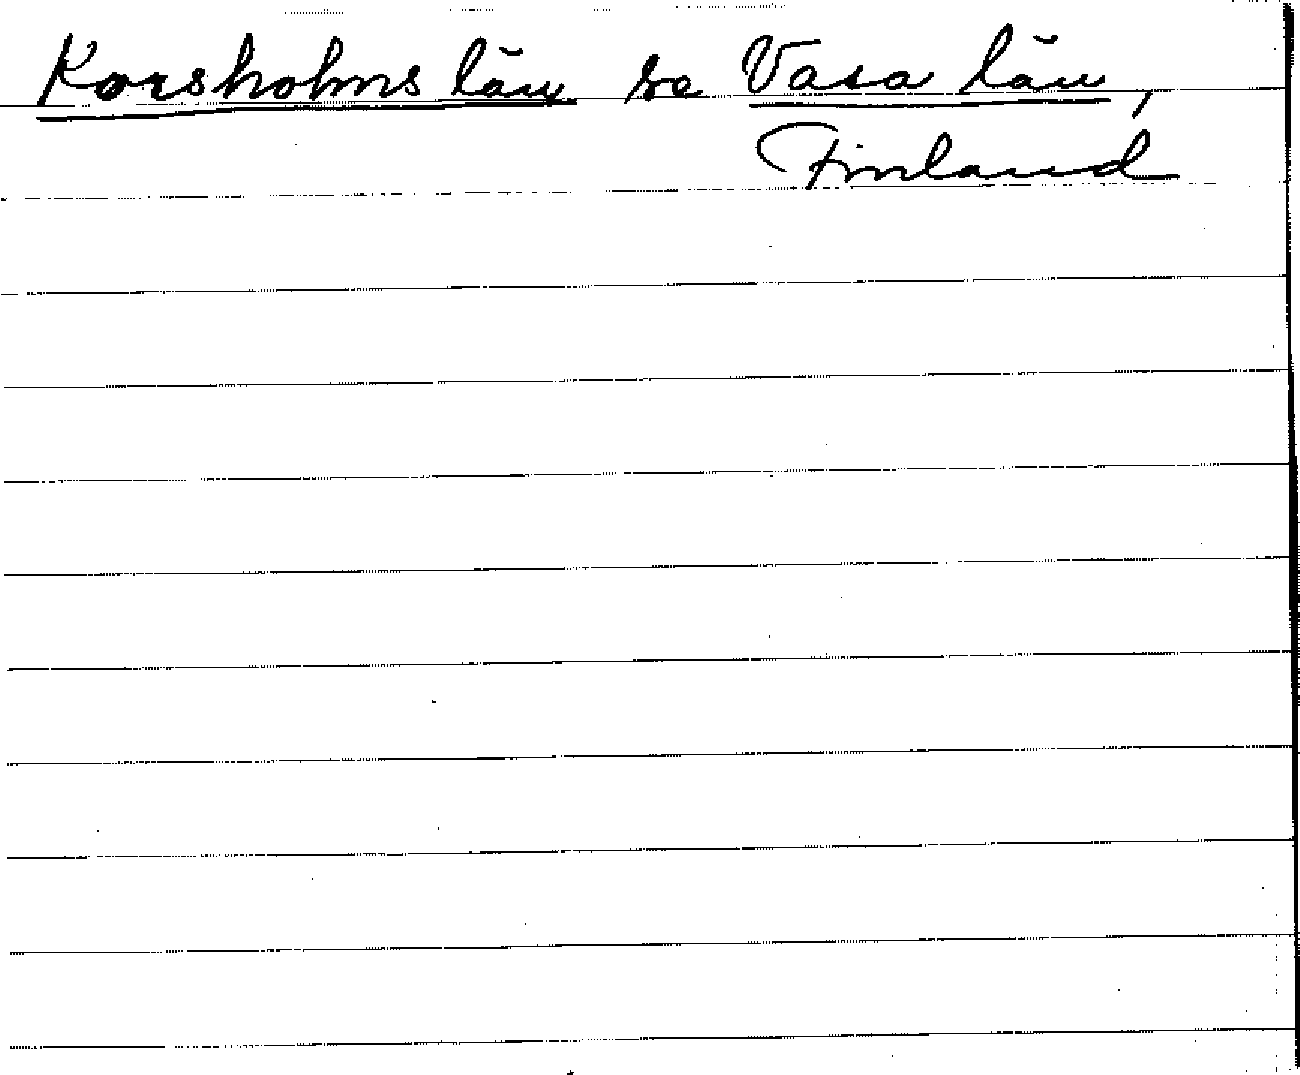 Korsholms län se Vasa län,
Finland